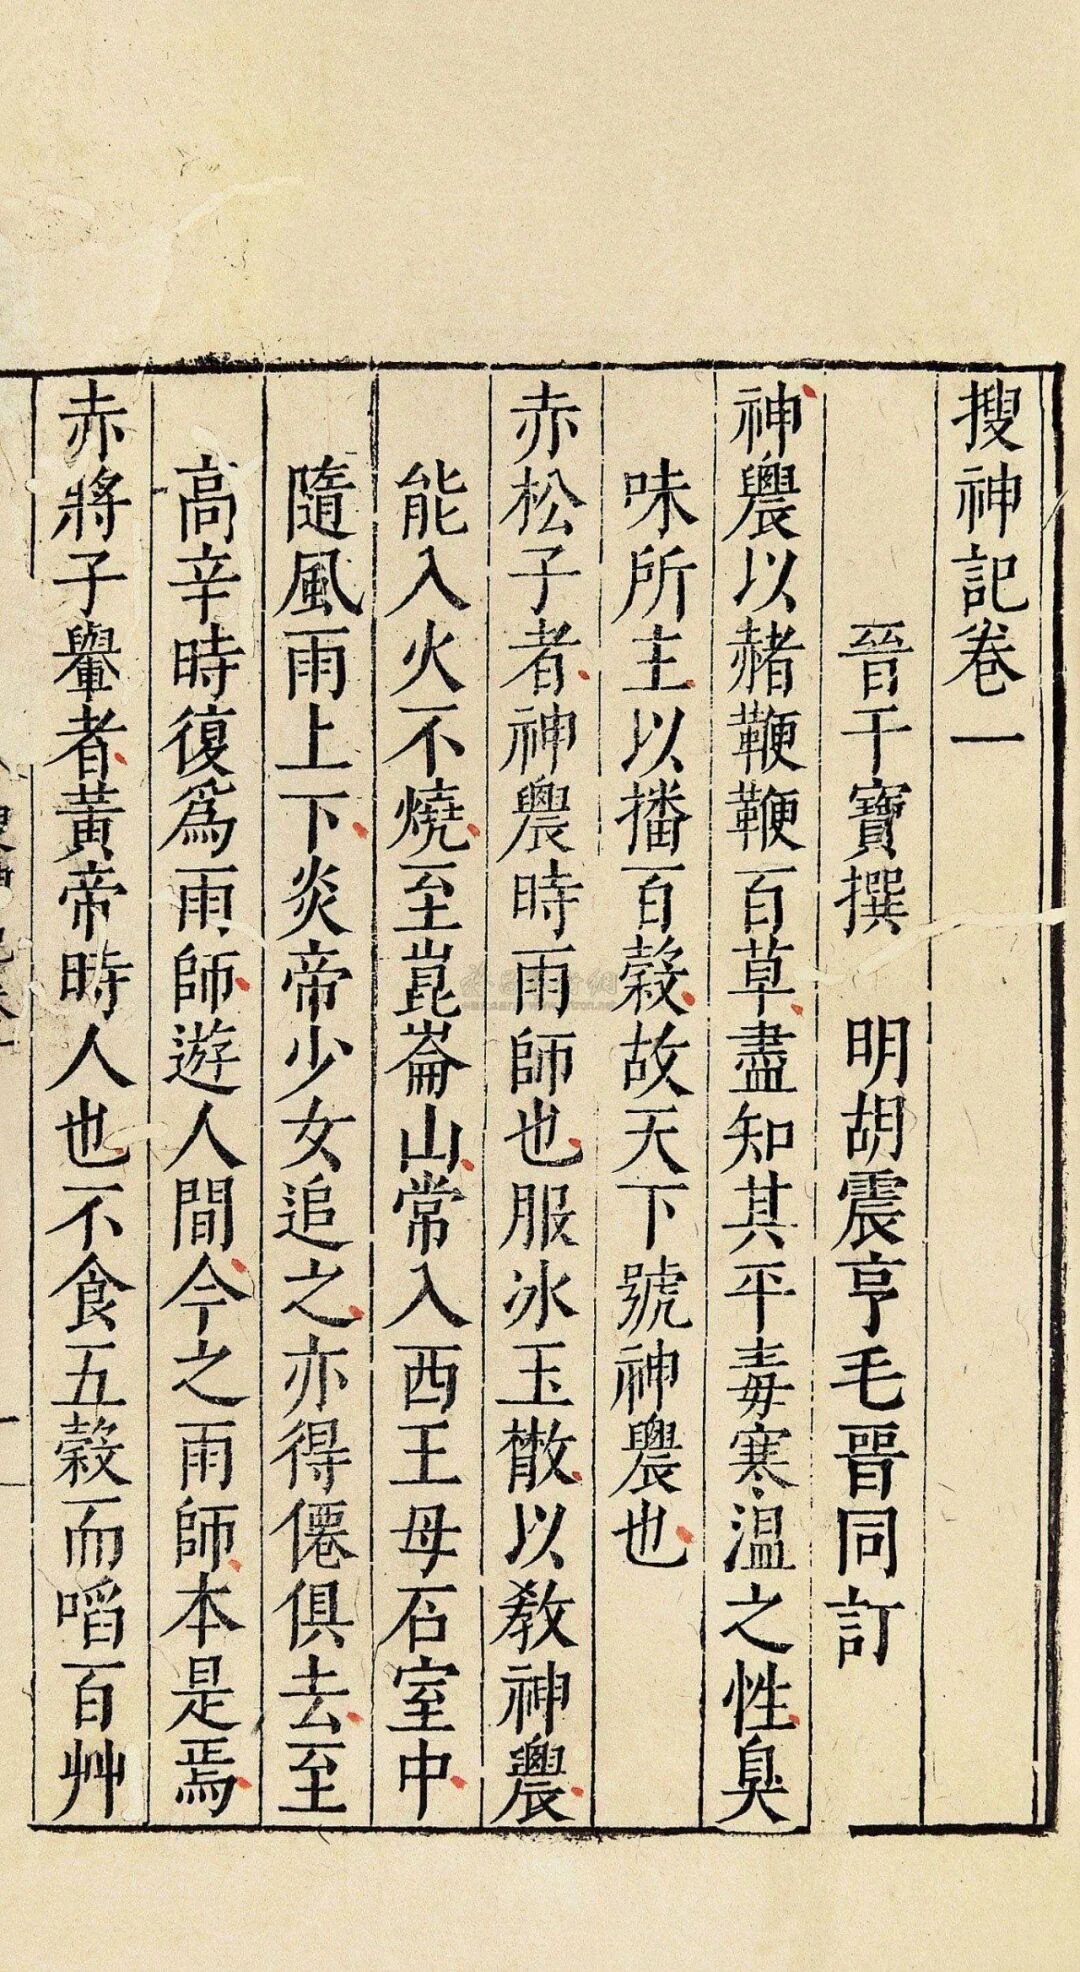 搜神記卷一
晉干寶撰 明胡震亨毛晉同訂
神農以赭鞭鞭百草盡知其平毒寒溫之性臭
味所主以播百穀故天下號神農也
赤松子者神農時雨師也服冰玉散以教神農
能入火不燒至崑崙山常入西王母石室中
隨風雨上下炎帝少女追之亦得僊俱去至
高辛時復為雨師遊人間今之雨師本是焉
赤將子轝者黃帝時人也不食五穀而啗百艸